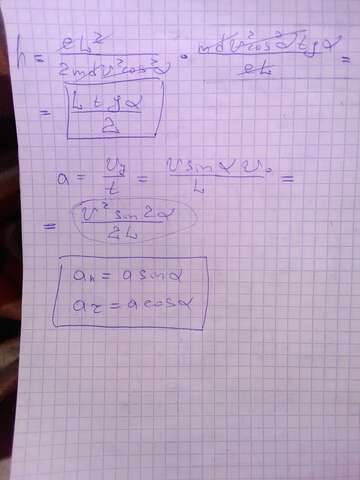 h = eL² / 2mdv²cos²α · mdv²cos²α tgα / eL =
= L tgα / 2
a = v_y / t = v sinα v₀ / L =
= v² sin2α / 2L
aₙ = a sinα
a_τ = a cosα